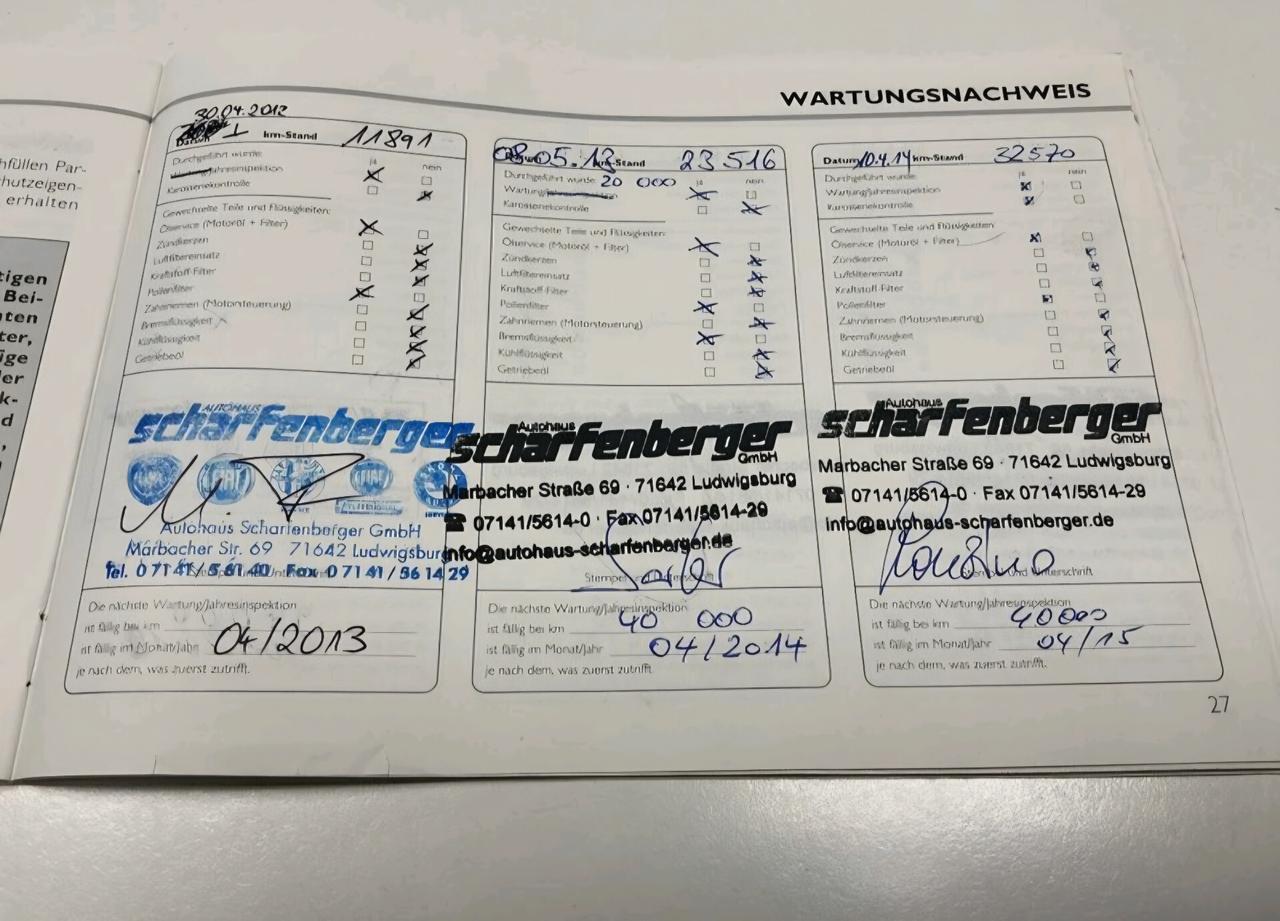 hfüllen Par-
hutzeigen-
erhalten
tigen
Bei-
nten
ter,
ige
ler
k-
d
WARTUNGSNACHWEIS
30.04.2012
Datum km-Stand 11891
Durchgeführt wurde: ja nein
Jahresinspektion
Karosseriekontrolle
Gewechselte Teile und Flüssigkeiten:
Ölservice (Motoröl + Filter)
Zündkerzen
Luftfiltereinsatz
Kraftstoff-Filter
Pollenfilter
Zahnriemen (Motorsteuerung)
Bremsflüssigkeit
Kühlflüssigkeit
Getriebeöl
AUTOHAUS
scharfenberger
FIAT
Autohaus Scharfenberger GmbH
Marbacher Str. 69 71642 Ludwigsburg
Tel. 0 71 41 / 5 61 40 Fax 0 71 41 / 56 14 29
Die nächste Wartung/Jahresinspektion
ist fällig bei km
ist fällig im Monat/Jahr 04/2013
je nach dem, was zuerst zutrifft.
08.05.13 km-Stand 23 516
Durchgeführt wurde 20 000 ja nein
Wartung/Jahresinspektion
Karosseriekontrolle
Gewechselte Teile und Flüssigkeiten:
Ölservice (Motoröl + Filter)
Zündkerzen
Luftfiltereinsatz
Kraftstoff-Filter
Pollenfilter
Zahnriemen (Motorsteuerung)
Bremsflüssigkeit
Kühlflüssigkeit
Getriebeöl
Autohaus
scharfenberger
GmbH
Marbacher Straße 69 · 71642 Ludwigsburg
☎ 07141/5614-0 · Fax 07141/5614-29
info@autohaus-scharfenberger.de
Stempel
Die nächste Wartung/Jahresinspektion
ist fällig bei km 40 000
ist fällig im Monat/Jahr 04/2014
je nach dem, was zuerst zutrifft.
Datum 10.4.14 km-Stand 32570
Durchgeführt wurde: ja nein
Wartung/Jahresinspektion
Karosseriekontrolle
Gewechselte Teile und Flüssigkeiten:
Ölservice (Motoröl + Filter)
Zündkerzen
Luftfiltereinsatz
Kraftstoff-Filter
Pollenfilter
Zahnriemen (Motorsteuerung)
Bremsflüssigkeit
Kühlflüssigkeit
Getriebeöl
Autohaus
scharfenberger
GmbH
Marbacher Straße 69 · 71642 Ludwigsburg
☎ 07141/5614-0 · Fax 07141/5614-29
info@autohaus-scharfenberger.de
Stempel und Unterschrift
Die nächste Wartung/Jahresinspektion
ist fällig bei km 40000
ist fällig im Monat/Jahr 04/15
je nach dem, was zuerst zutrifft.
27